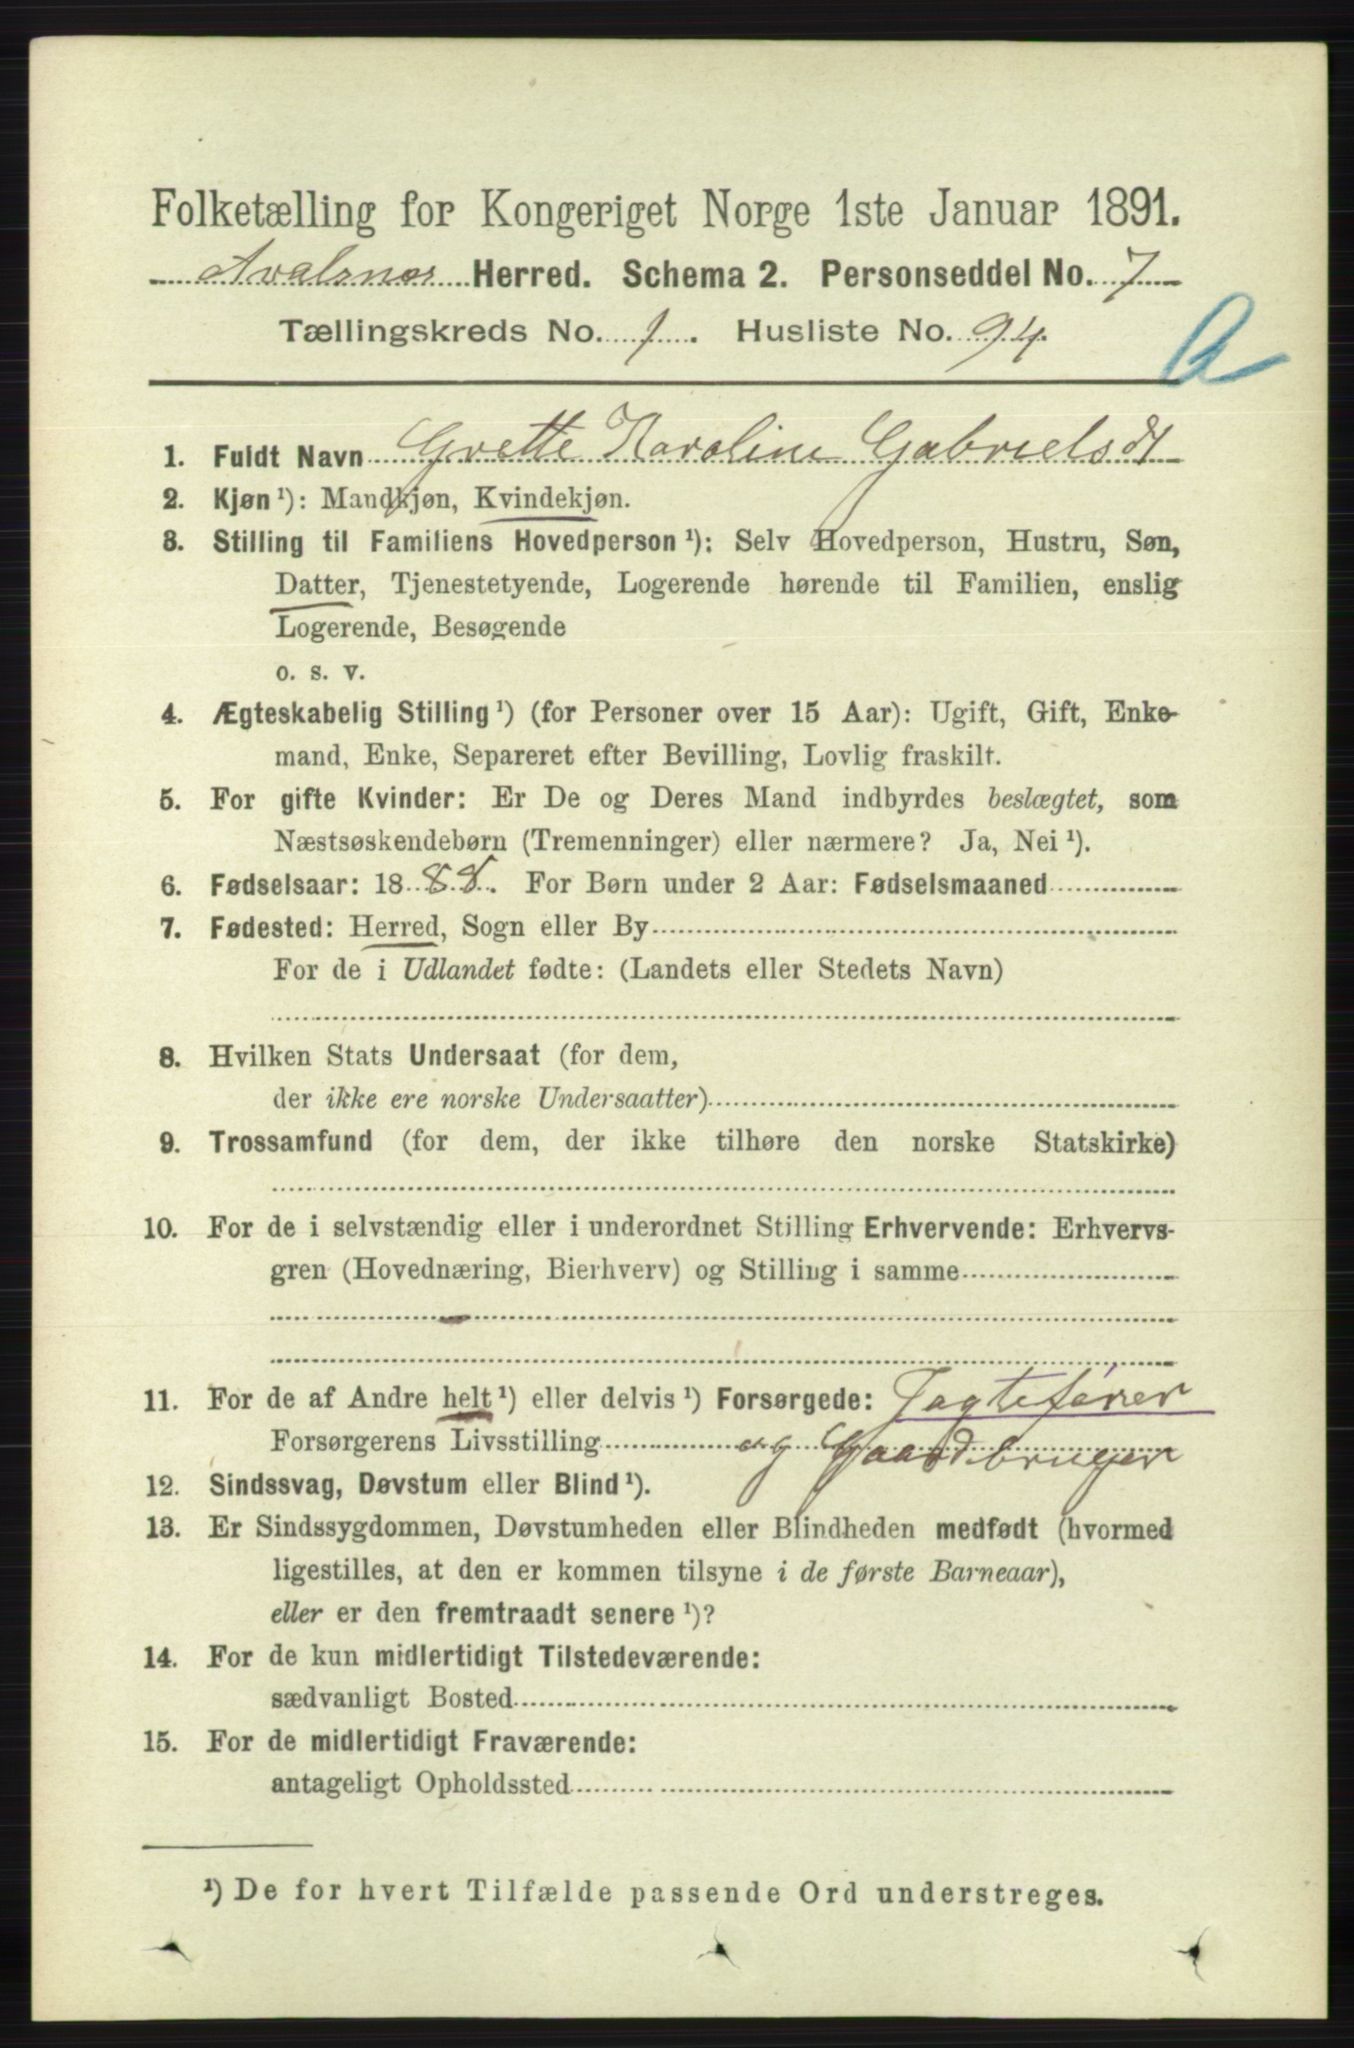 Folketælling for Kongeriget Norge 1ste Januar 1891.
Avalsnes Herred. Schema 2. Personseddel No. 7
Tællingskreds No. 1. Husliste No. 94.
A
1. Fuldt Navn Grette Karoline Gabrielsdt
2. Kjøn ¹): Mandkjøn, Kvindekjøn.
3. Stilling til Familiens Hovedperson ¹): Selv Hovedperson, Hustru, Søn,
Datter, Tjenestetyende, Logerende hørende til Familien, enslig
Logerende, Besøgende
o. s. v.
4. Ægteskabelig Stilling ¹) (for Personer over 15 Aar): Ugift, Gift, Enke-
mand, Enke, Separeret efter Bevilling, Lovlig fraskilt.
5. For gifte Kvinder: Er De og Deres Mand indbyrdes beslægtet, som
Næstsøskendebørn (Tremenninger) eller nærmere? Ja, Nei ¹).
6. Fødselsaar: 1888. For Børn under 2 Aar: Fødselsmaaned
7. Fødested: Herred, Sogn eller By
For de i Udlandet fødte: (Landets eller Stedets Navn)
8. Hvilken Stats Undersaat (for dem,
der ikke ere norske Undersaatter)
9. Trossamfund (for dem, der ikke tilhøre den norske Statskirke)
10. For de i selvstændig eller i underordnet Stilling Erhvervende: Erhvervs-
gren (Hovednæring, Bierhverv) og Stilling i samme
11. For de af Andre helt ¹) eller delvis ¹) Forsørgede: Jagtefører
Forsørgerens Livsstilling og Gaardbruger
12. Sindssvag, Døvstum eller Blind ¹).
13. Er Sindssygdommen, Døvstumheden eller Blindheden medfødt (hvormed
ligestilles, at den er kommen tilsyne i de første Barneaar),
eller er den fremtraadt senere ¹)?
14. For de kun midlertidigt Tilstedeværende:
sædvanligt Bosted
15. For de midlertidigt Fraværende:
antageligt Opholdssted
¹) De for hvert Tilfælde passende Ord understreges.